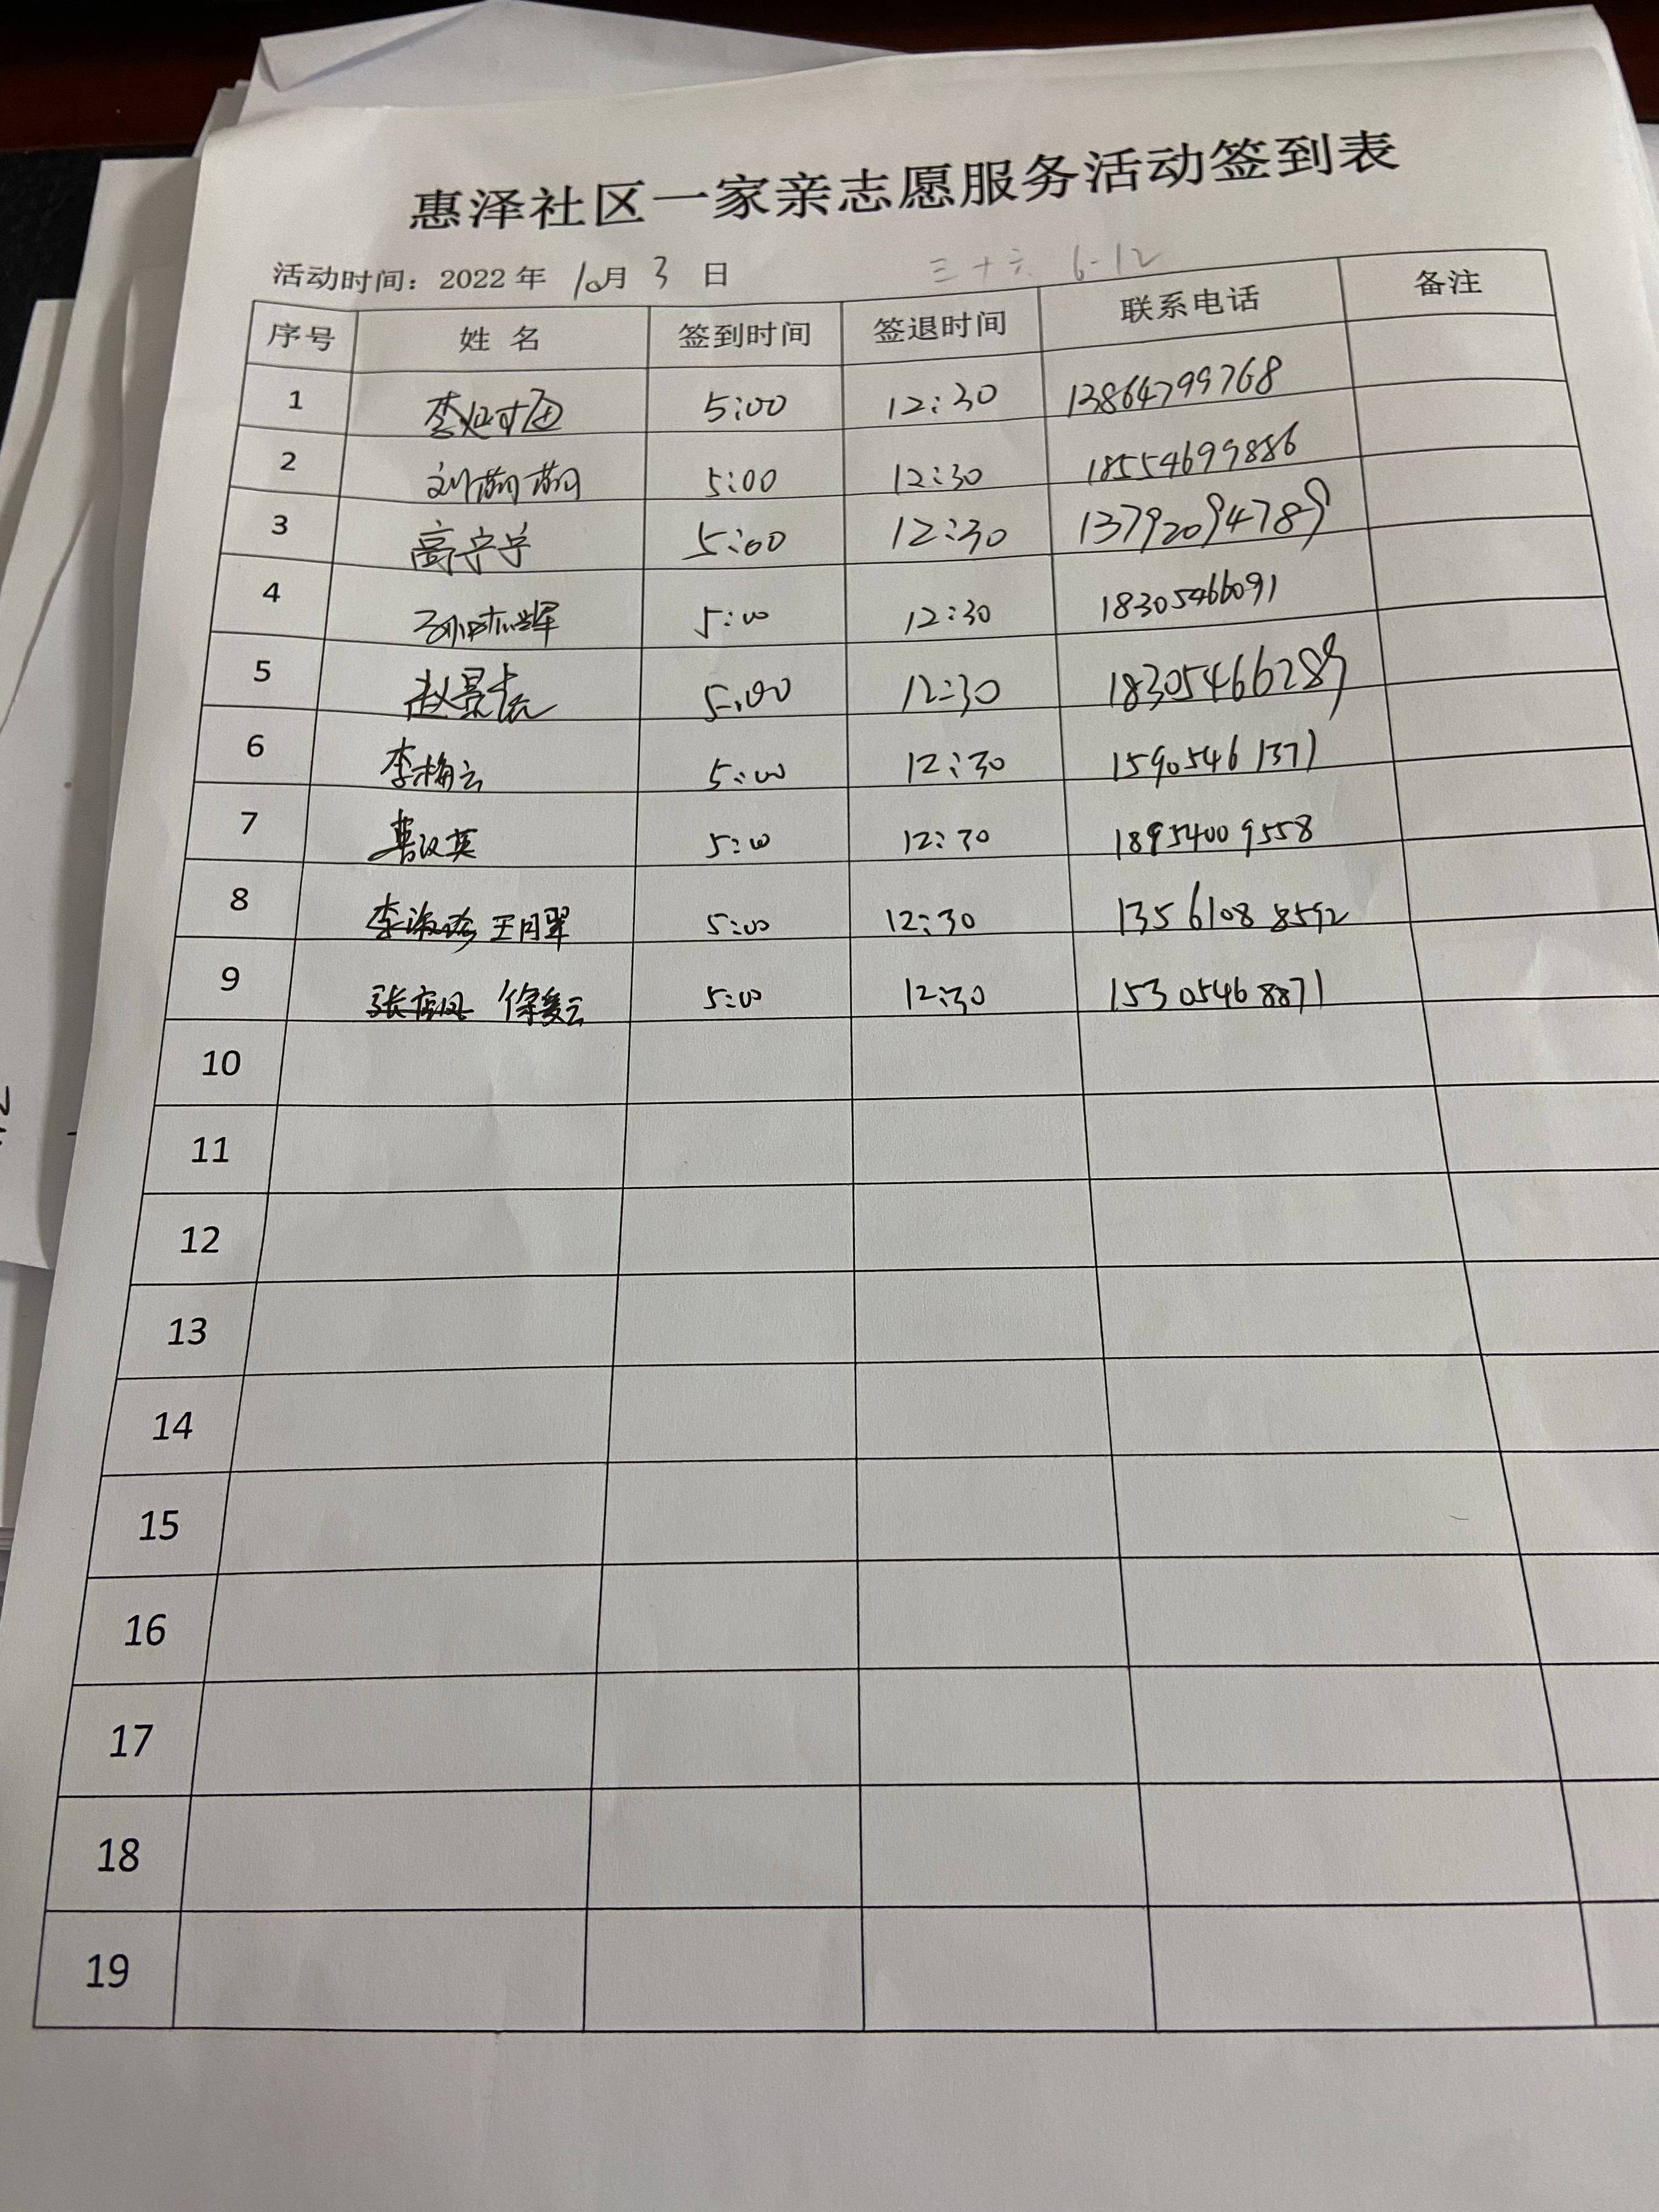 惠泽社区一家亲志愿服务活动签到表
活动时间：2022年 10月 3 日 三十六 6-12
序号 姓名 签到时间 签退时间 联系电话 备注
1 5:00 12:30 13864799768
2 刘萌萌 5:00 12:30 18554699886
3 高宁宁 5:00 12:30 13792094789
4 5:00 12:30 18305466091
5 赵景 5:00 12:30 18305466289
6 李梅云 5:00 12:30 15905461371
7 汉英 5:00 12:30 18954009558
8 李淑珍 王月翠 5:00 12:30 13561088592
9 张 凤 徐爱云 5:00 12:30 15305468871
10
11
12
13
14
15
16
17
18
19